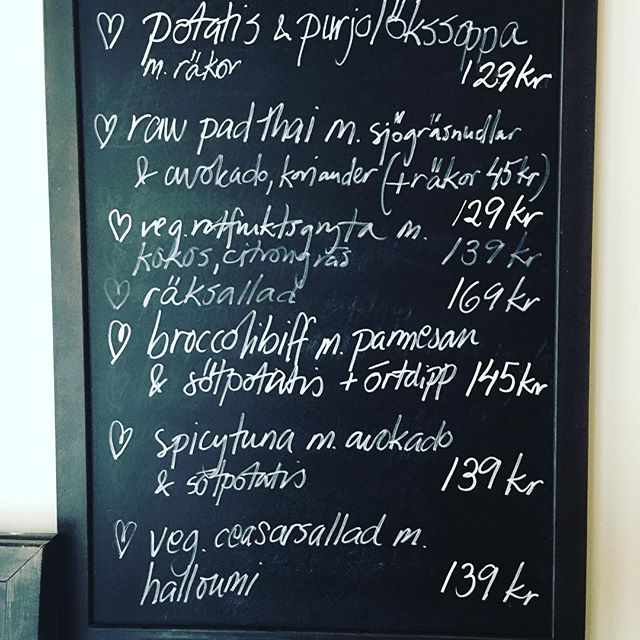 potatis & purjolökssoppa
m. räkor 129 kr
raw pad thai m. sjögräsnudlar
& avokado, koriander (+räkor 45 kr)
129 kr
veg. rotfruktsgryta m.
kokos, citrongräs 139 kr
räksallad 169 kr
broccolibiff m. parmesan
& sötpotatis + örtdipp 145 kr
spicytuna m. avokado
& sötpotatis 139 kr
veg. ceasarsallad m.
halloumi 139 kr